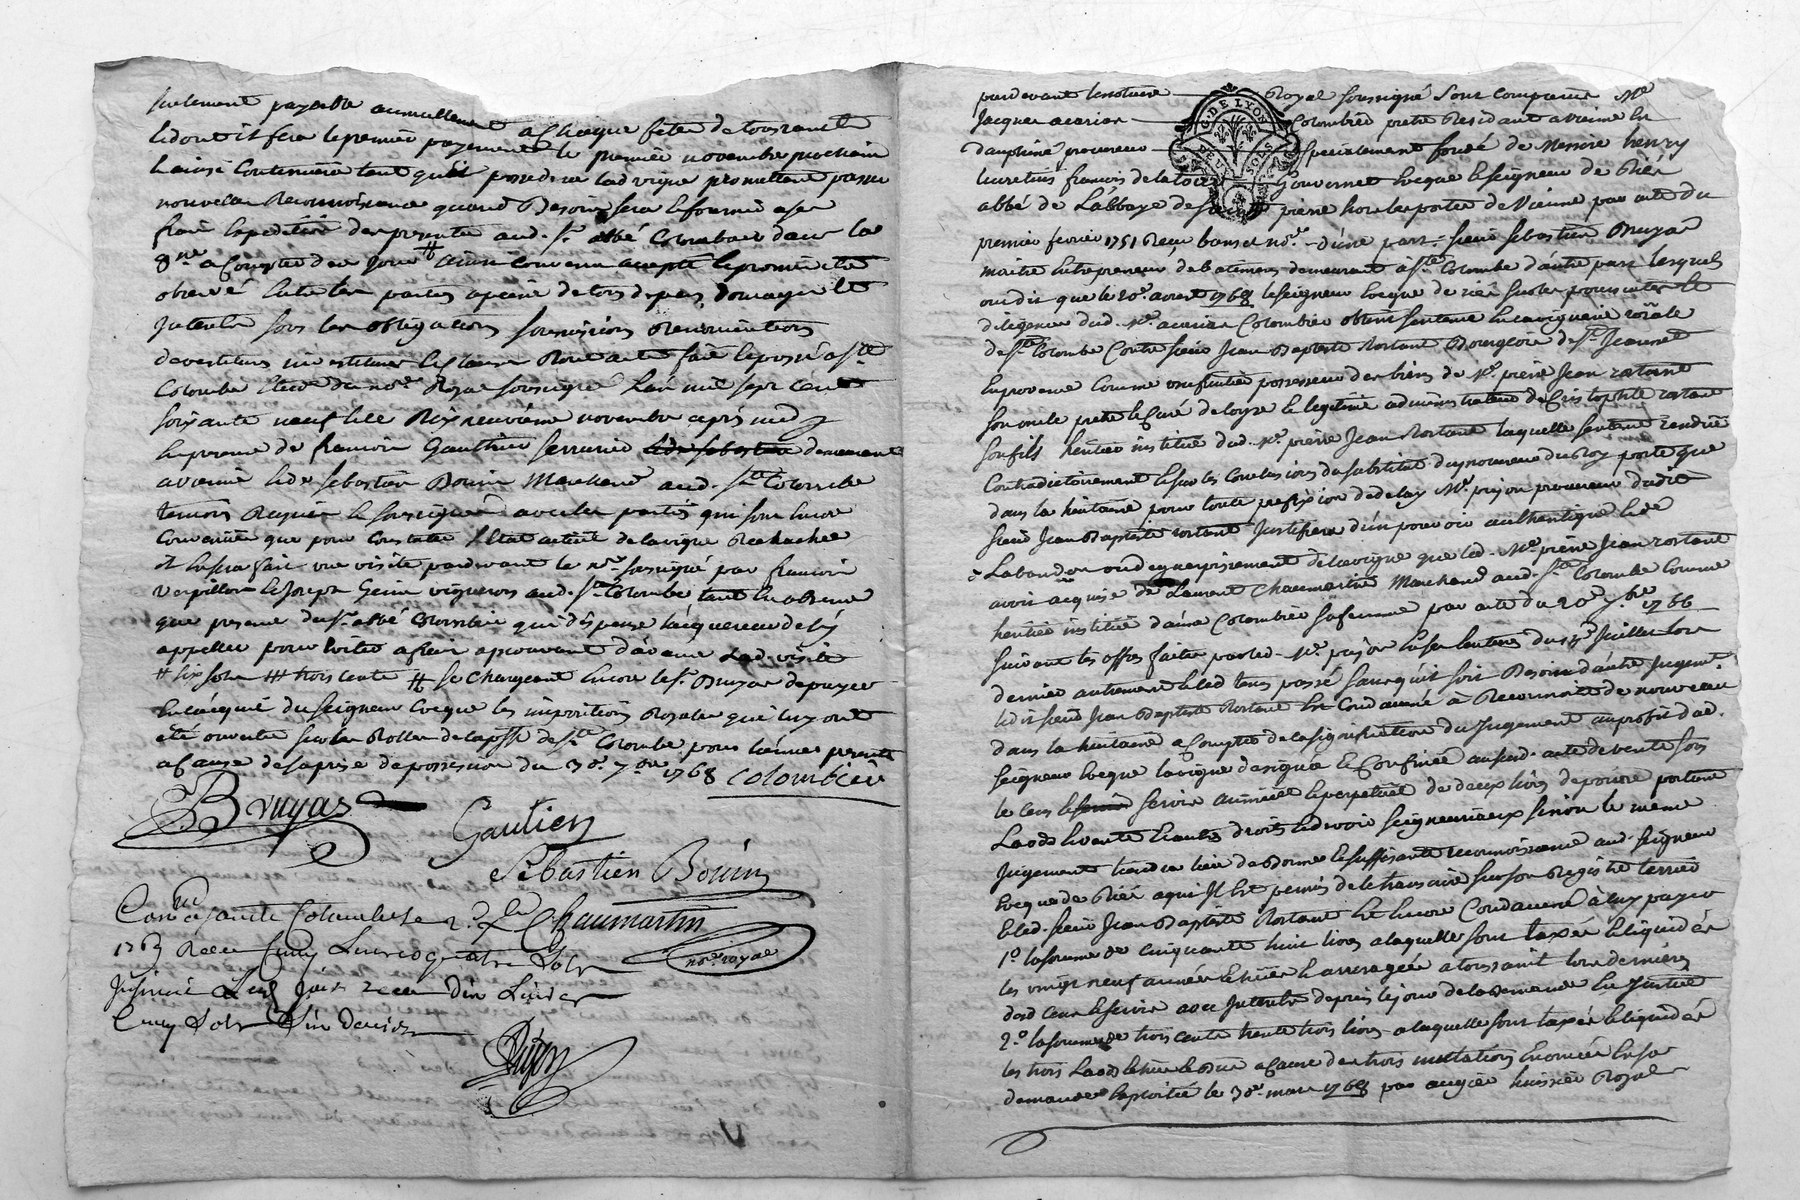 seulement payable annuellement a Chaque fête de toussaint
et dont il fera le premier payement le premier novembre prochain
et ainsi Continuera tant qu'il possedera lad vigne promettant passer
nouvelle Reconnoissance quand Besoin sera et fournir a ses
frais Expedition des presentes aud. sr abbé Colombier dans la
8ne a Compter de ce jour # ainsi convenu accepté et promis etre
observé Entre les parties a peine de tous depens, domages et
Interets sous les obligations soumissions Renonciations
devestitures investitures et clauses Requises fait et passé a ste
Colombe Etude du nore Royal soussigné L'an mil sept cent
soixante neuf et le dix neuvieme novembre après midy
En presence de francois Gauthier serrurier demeurant
a vienne et de sebastien Bouin Marchand aud. ste Colombe
temoins Requis et soussignés avec les parties qui sont Encore
Convenues que pour Constater l'Etat actuel de la vigne Relachée
il En sera fait une visite pardevant le nre soussigné par francois
verpillon et Joseph Genin vignerons aud. ste Colombe tant En absence
que presence du sr abbé Colombier qui dispense l'acquereur de l'y
appeller pour Eviter a frais aprouvant d'avance Lad. visite
# six sols ## trois cents # se Chargeant Encore le sr Bruyas de payer
En l'acquit du seigneur Eveque les impositions Royales qui luy ont
été ouvertes sur les Rolles de la psse de ste Colombe pour l'année presente
a Cause de sa prise de possession du 30e 7bre 1768 Colombier
Bruyas
Gautier
Sebastien Bouin
Conlé a sainte Colombe le 2e Xbre Chaumartin
nore royal
1769 Receu Cinq Livres quatre sols
Insinué Led jour receu dix Livres
Cinq sols six deniers
Dijon
pardevant le notaire Royal soussigné sont comparus Mre
Jacques acarias Colombier pretre Residant a vienne En
dauphiné procureur specialement fondé de Messire henry
lucretius francois de la tour Gouvernet Eveque et seigneur de Riés
abbé de L'abbaye de saint pierre hors les portes de Vienne par acte du
premier fevrier 1751 Reçu nore d'une part; sieur sebastien Bruyas
maitre Entrepreneur de batimens demeurant a ste Colombe d'autre part Lesquels
ont dit que le 20e aoust 1768 le seigneur Eveque de riés sur les poursuites et
diligences dud. Mre acarias Colombier obtint sentence En la viguerie royale
de ste Colombe Contre sieur Jean Baptiste Rostant Bourgeois de st Jeannet
En provence Comme usufruitier possesseur des biens de Mre pierre Jean rostant
son oncle pretre et Curé de loyre et legitime administrateur de Cristophle rostant
son fils heritier institué dud. Mre pierre Jean Rostant laquelle sentence rendue
Contradictoirement et sur les Conclusions du substitut du procureur du Roy porte que
dans la huitaine pour toute prefixion de delay Mre pejon procureur dudit
sieur Jean Baptiste rostant Justifiera d'un pouvoir authentique et de
L'abandon ou deguerpissement de la vigne que led. Mre pierre Jean rostant
avoit acquise de Laurent Chaumartin Marchand aud. ste Colombe Comme
heritier institué d'anne Colombier sa femme par acte du 20e 7bre 1766
suivant les offres faites par led. Mre pejon En sen lecture du 14e Juillet lors
dernier autrement et led tems passé sans qu'il soit Besoin d'autre Jugemt.
ledit sieur Jean Baptiste Rostant Est Condamné à Reconnoitre de nouveau
dans la huitaine a Compter de la signification du Jugement au profit dud.
seigneur Eveque la vigne designée et Confinée au susd. acte de vente sous
le cens et servis annuel et perpetuel de deux liv. de poivre portant
Laods et vente et autres droits et devoirs seigneuriaux sinon le meme
Jugement tiendra lieu de Bonne et suffisante reconnoissance aud. seigneur
Eveque de Riés a qui Il Est permis de le transcrire sur son Registre terrier
et led. sieur Jean Baptiste Rostant Est Encore Condamné à luy payer
1o la somme de Cinquante huit livres a laquelle sont taxés et liquidés
les vingt neuf années Echues et arreragées a toussaint lors derniere
dud cens et servis avec Interets depuis le jour de la demande En Justice
2o la somme de trois cents trente trois livres a laquelle sont taxés et liquidés
les trois Laods Echus et Dus a cause des trois mutations Enoncées En sa
demande Exploitée le 30e mars 1768 par augier huissier Royal
G. DE LYON
DEUX SOLS